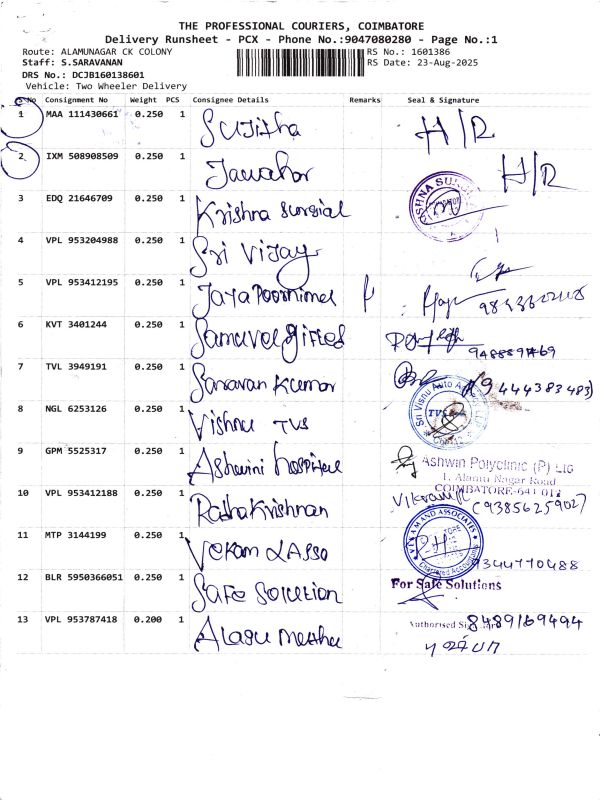 THE PROFESSIONAL COURIERS, COIMBATORE
Delivery Runsheet - PCX - Phone No.:9047080280 - Page No.:1
Route: ALAMUNAGAR CK COLONY RS No.: 1601386
Staff: S.SARAVANAN RS Date: 23-Aug-2025
DRS No.: DCJB160138601
Vehicle: Two Wheeler Delivery
S No Consignment No Weight PCS Consignee Details Remarks Seal & Signature
1 MAA 111430661 0.250 1 Sujitha H/R
2 IXM 508908509 0.250 1 Jawahar H/R
3 EDQ 21646709 0.250 1 Krishna Surgial
4 VPL 953204988 0.250 1 Sri Vijay
5 VPL 953412195 0.250 1 Jaya Poornima
6 KVT 3401244 0.250 1 Samuvel gifted
7 TVL 3949191 0.250 1 Saravan Kumar 9444383483
8 NGL 6253126 0.250 1 Vishnu TVS
Sri Vishu Auto
TVS
9 GPM 5525317 0.250 1 Ashwini hospital
Ashwin Polyclinic (P) Ltd
1, Alamu Nagar Road
COIMBATORE-641 012
10 VPL 953412188 0.250 1 Radha Krishnan Vikram
(9385625902)
11 MTP 3144199 0.250 1 Vekam & Asso
Chartered Accountants
9344770488
12 BLR 5950366051 0.250 1 Safe Solution
For Safe Solutions
Authorised
13 VPL 953787418 0.200 1 Alagu Muthu
8489169494